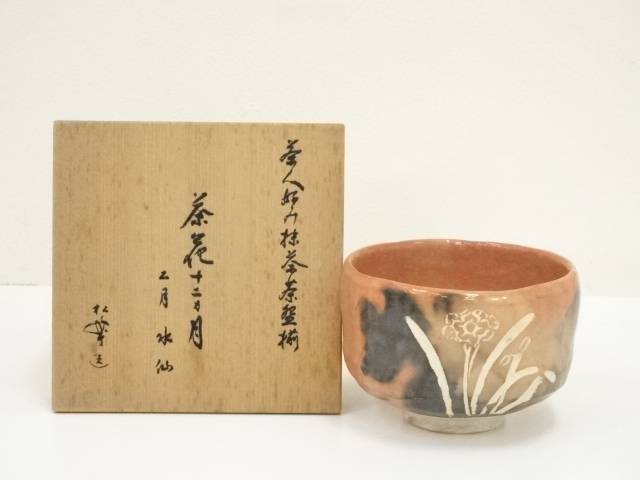 茶人好み抹茶茶碗揃
茶花十二ヵ月
二月 水仙
松峯造